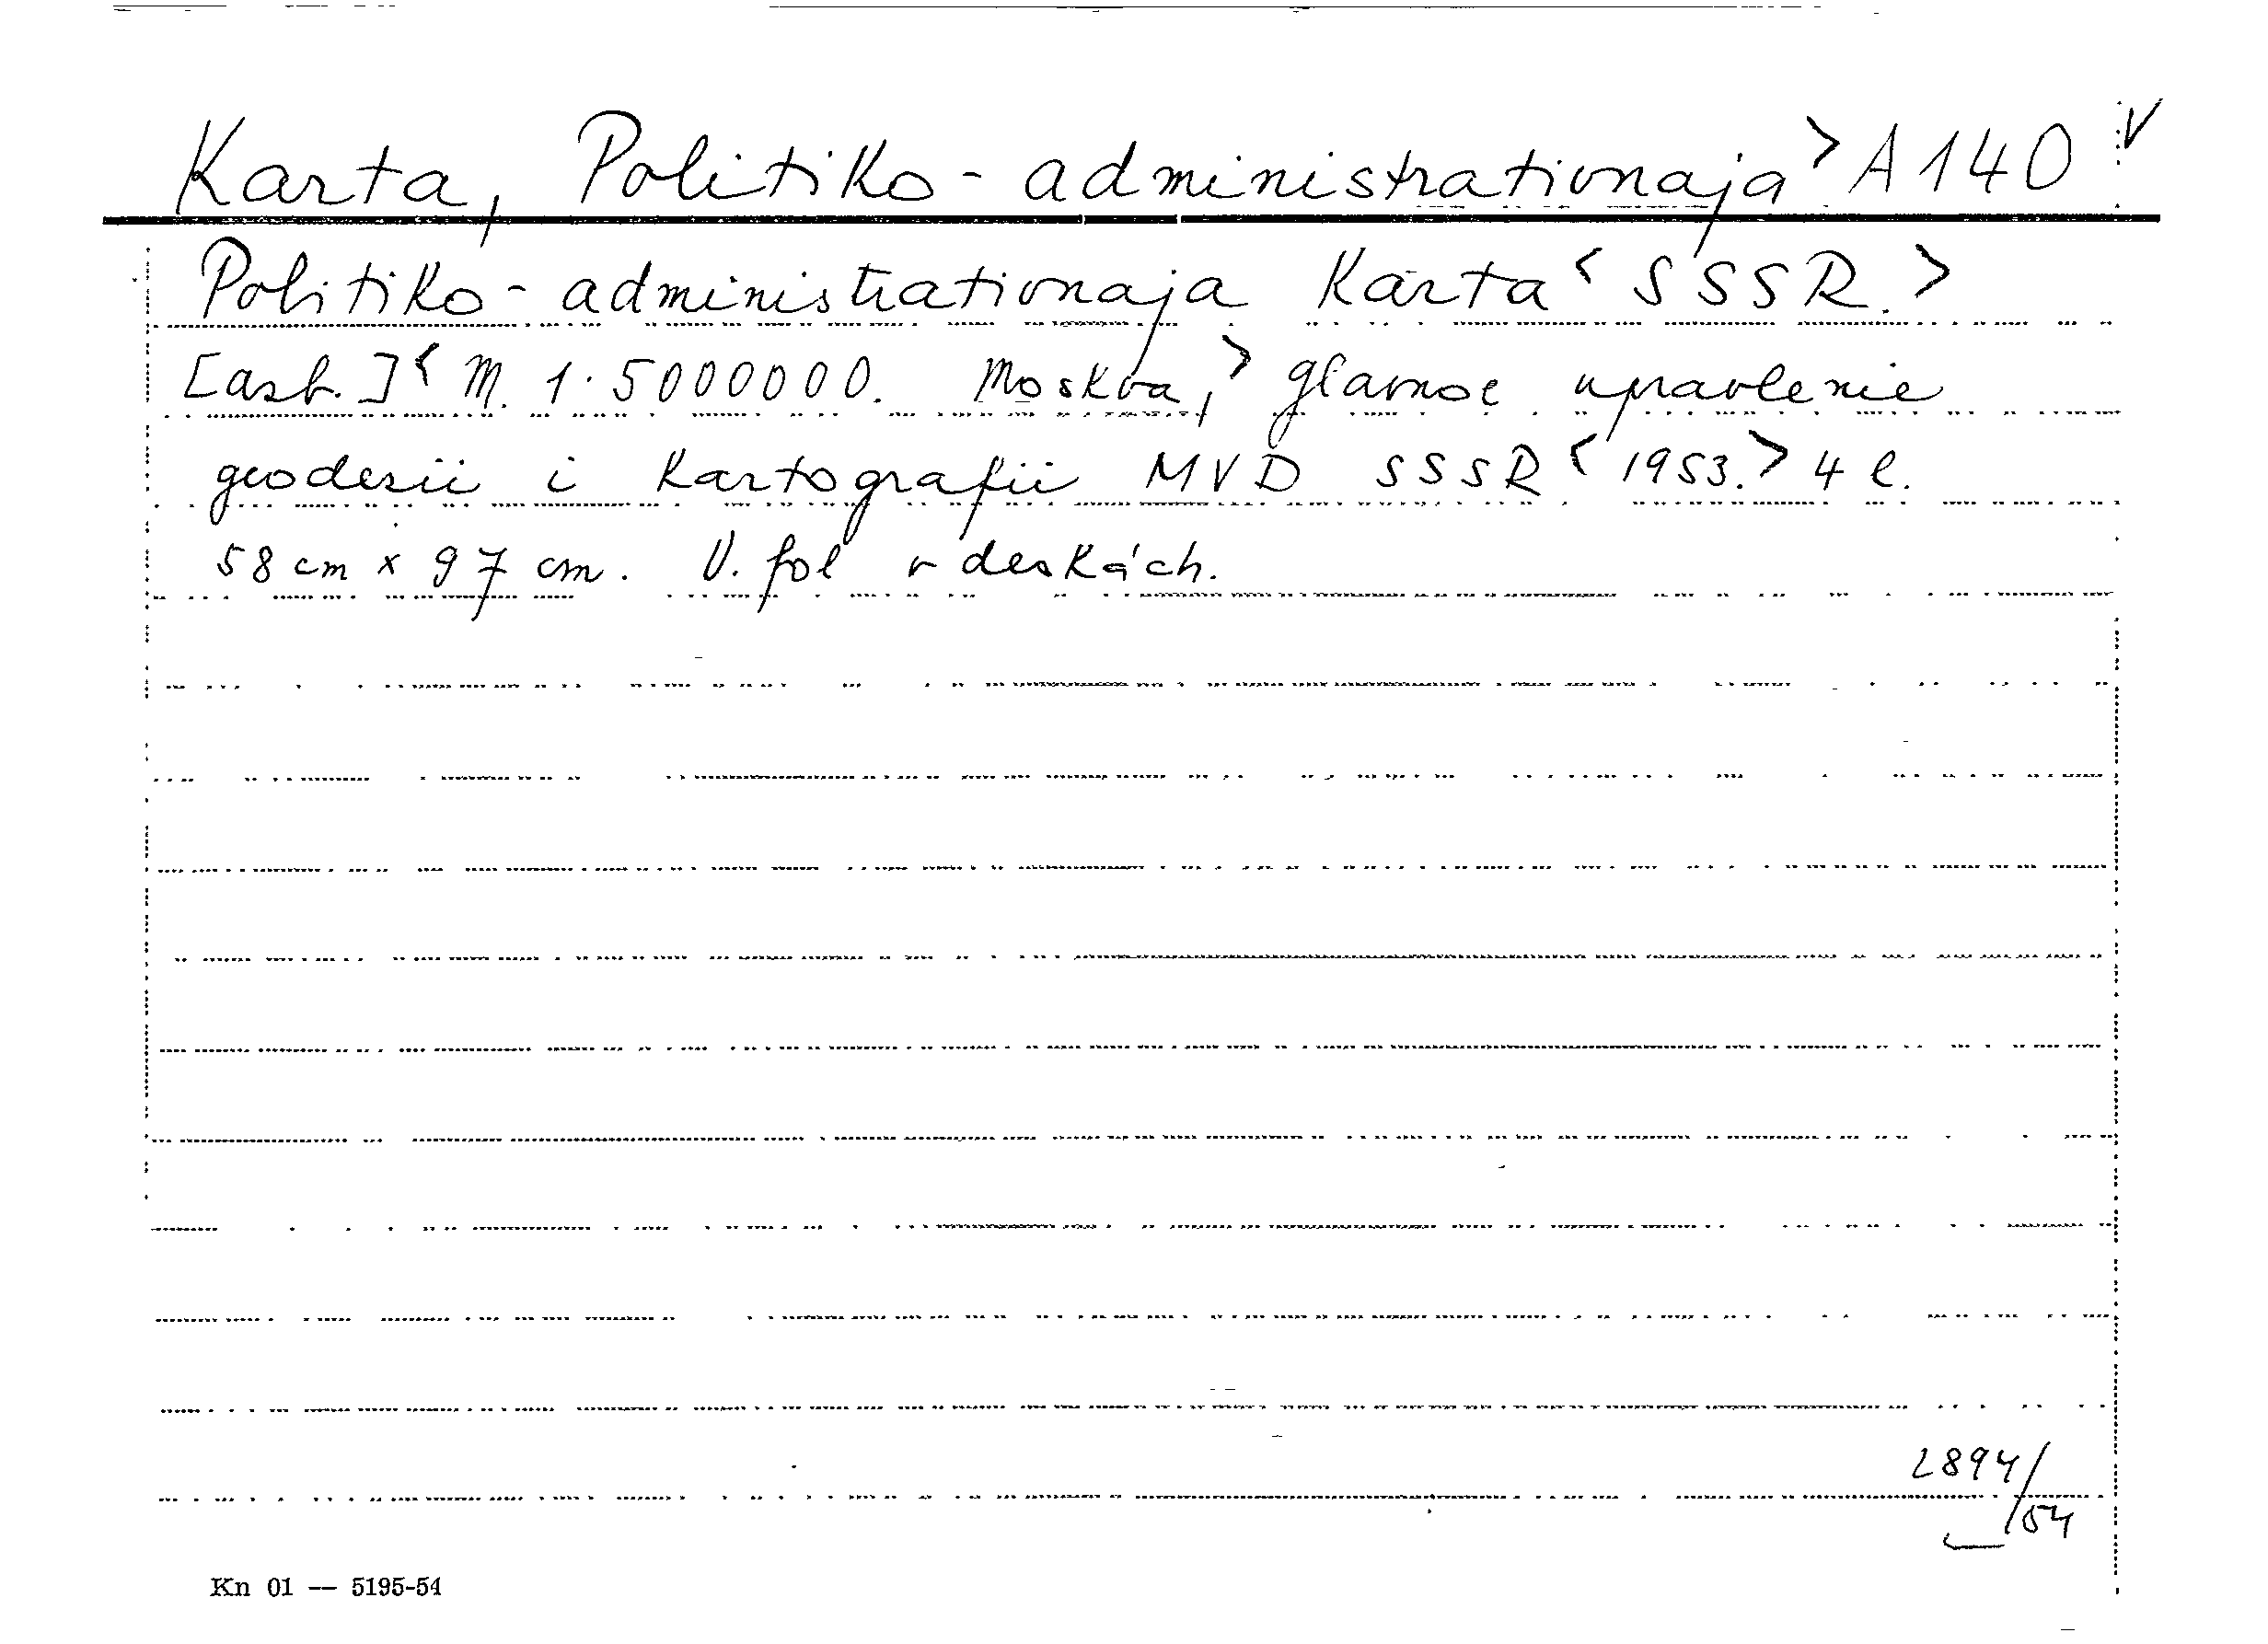 Karta, Politiko-administrativnaja > A 140 V
Politiko-administrativnaja Karta < SSSR. >
[azb.] < M. 1:5000000. Moskva, > glavnoe upravlenie
geodezii i Kartografii MVD SSSR < 1953. > 4 l.
58 cm x 97 cm. V. fol v deskách.
2894/
/54
Kn 01 — 5195-54